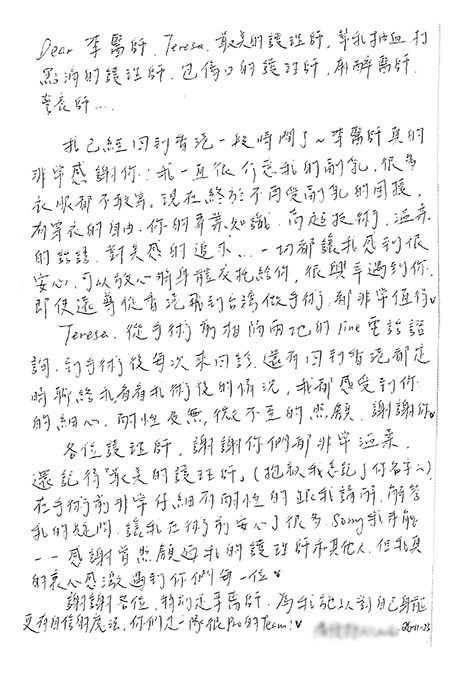 Dear 李醫師, Teresa, 最美的護理師, 幫我抽血、打
點滴的護理師, 包傷口的護理師, 麻醉醫師,
營養師...
我已經回到香港一段時間了~ 李醫師真的
非常感謝你! 我一直很介意我的副乳, 很多
衣服都不敢穿。現在終於不再受副乳的困擾,
有穿衣的自由。你的專業知識、高超技術、溫柔
的說話、對美感的追求... 一切都讓我感到很
安心, 可以放心將身體交托給你, 很興幸遇到你,
即使遠從香港飛到台灣做手術, 都非常值得♥
Teresa, 從手術前相隔兩地的line電話諮
詢, 到手術後每次來回診, 還有回到香港都定
時聯絡我看看我術後的情況, 我都感受到你
的細心、耐性及無微不至的照顧, 謝謝你♥
各位護理師, 謝謝你們都非常溫柔,
還記得「最美的護理師」(抱歉我忘記了你名字)
在手術前非常仔細有耐性的跟我講解、解答
我的疑問, 讓我在術前安心了很多。Sorry我未能
一一感謝曾照顧過我的護理師和其他人, 但我真
的衷心感激遇到你們每一位♥
謝謝各位, 特別是李醫師, 為我施以對自己身體
更有自信的魔法, 你們是一隊很Pro的Team!♥